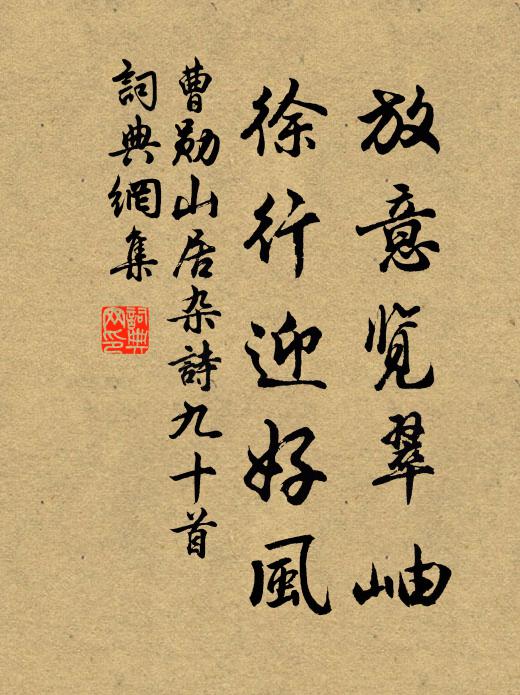 放意览翠岫
徐行迎好風
曹勛山居杂詩九十首
詞典網集
詞典网印